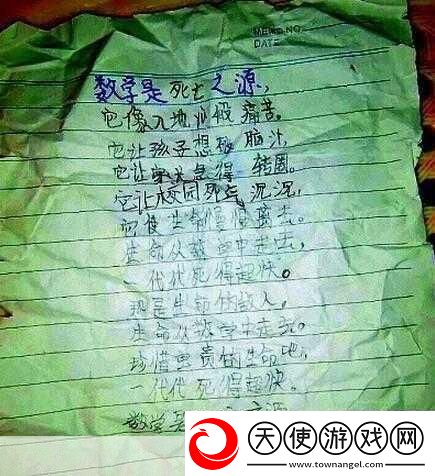 MEMO NO.
DATE
数学是死亡之源,
它像入地狱般痛苦。
它让孩子想破脑汁,
它让家长急得转圈。
它让校园死气沉沉,
它使生命慢慢离去。
生命从数学中走去,
一代代死得超快。
那是生命的敌人,
生命从数学中走去。
珍惜宝贵的生命吧,
一代代死得超快。
数学是之源
天使游戏网
www.townangel.com